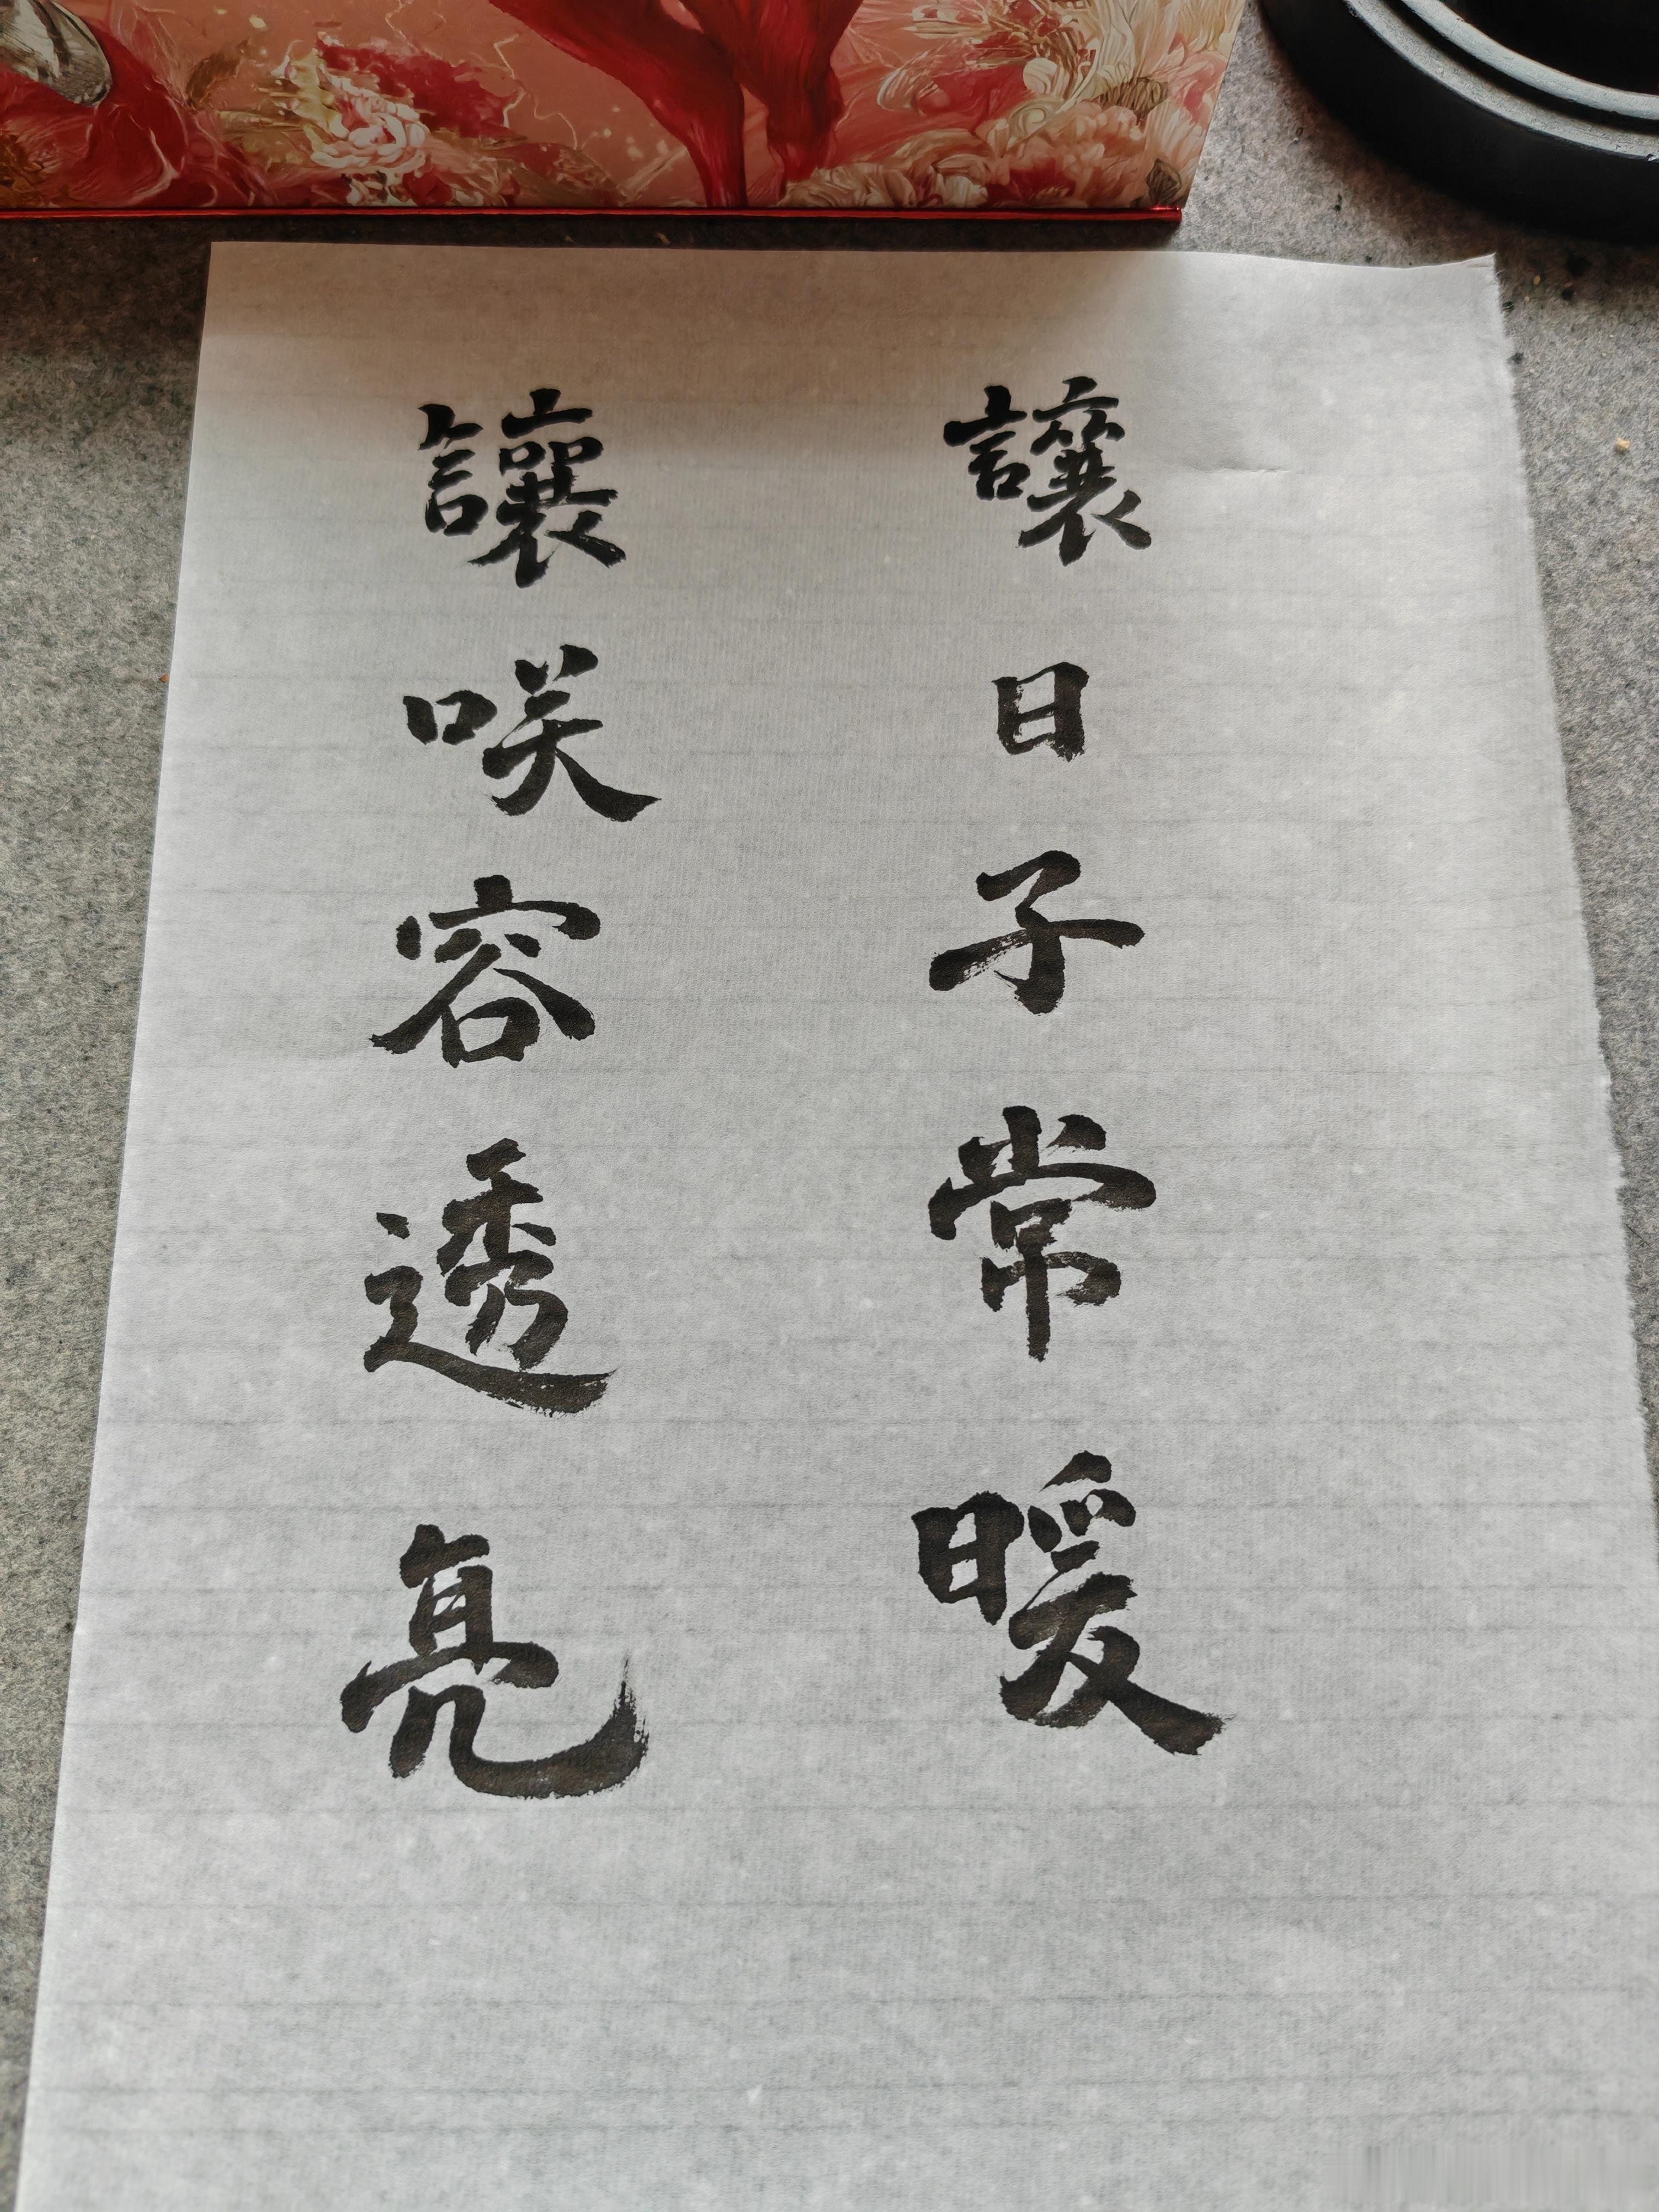 讓日子常暖
讓咲容透亮